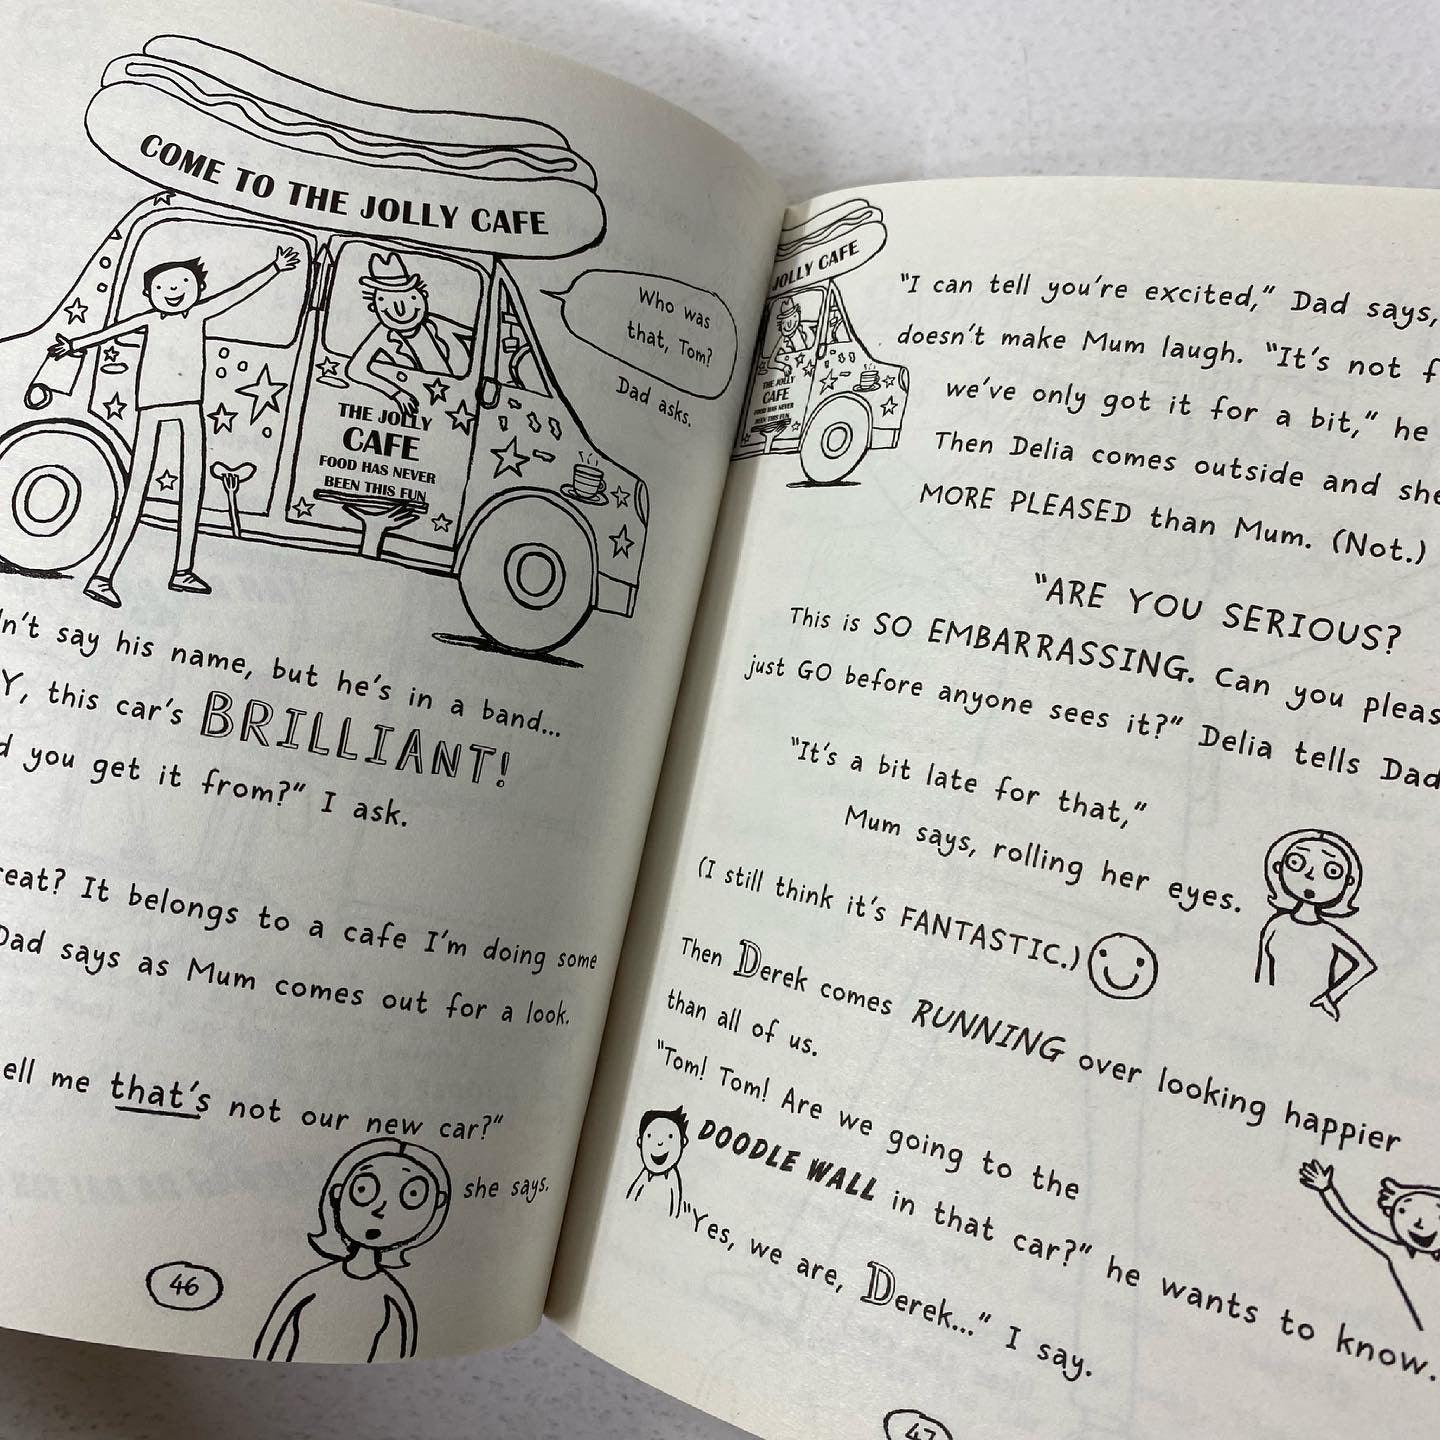 COME TO THE JOLLY CAFE
Who was
that, Tom?
Dad asks.
THE JOLLY
CAFE
FOOD HAS NEVER
BEEN THIS FUN
say his name, but he's in a band...
this car's BRILLIANT!
you get it from?" I ask.
It belongs to a cafe I'm doing some
Dad says as Mum comes out for a look.
me that's not our new car?"
she says.
46
JOLLY CAFE
THE JOLLY
CAFE
FOOD HAS NEVER
BEEN THIS FUN
"I can tell you're excited," Dad says,
doesn't make Mum laugh. "It's not
we've only got it for a bit," he
Then Delia comes outside and
MORE PLEASED than Mum. (Not.)
"ARE YOU SERIOUS?
This is SO EMBARRASSING. Can you
just GO before anyone sees it?" Delia tells Dad
"It's a bit late for that,"
Mum says, rolling her eyes.
(I still think it's FANTASTIC.)
Then Derek comes RUNNING over looking happier
than all of us.
"Tom! Tom! Are we going to the
DOODLE WALL in that car?" he wants to know.
"Yes, we are, Derek..." I say.
47